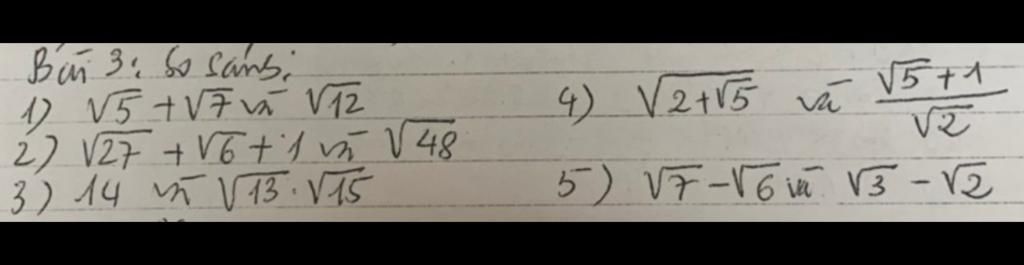 Bài 3: So sánh:
1) √5 + √7 và √12
2) √27 + √6 + 1 và √48
3) 14 và √13 . √15
4) √(2+√5) và (√5 + 1)/√2
5) √7 - √6 và √3 - √2